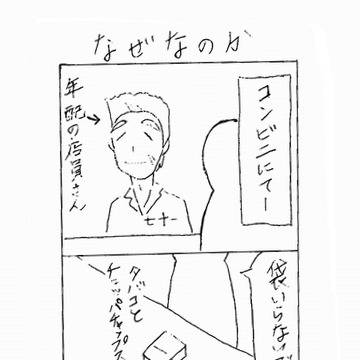 なぜなのか
コンビニにてー
年配の店員さん
セナー
袋いらない
タバコと
チュッパチャップス